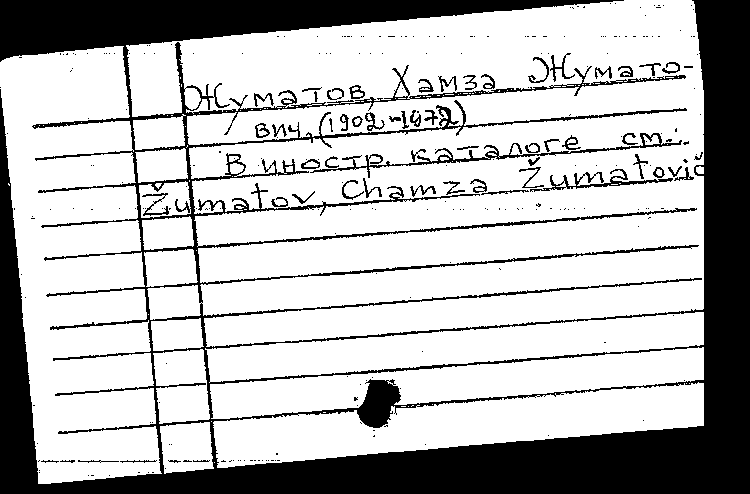 Жуматов, Хамза Жумато-
вич, (1902-1972)
В иностр. каталоге см.:
Žumatov, Chamza Žumatovič